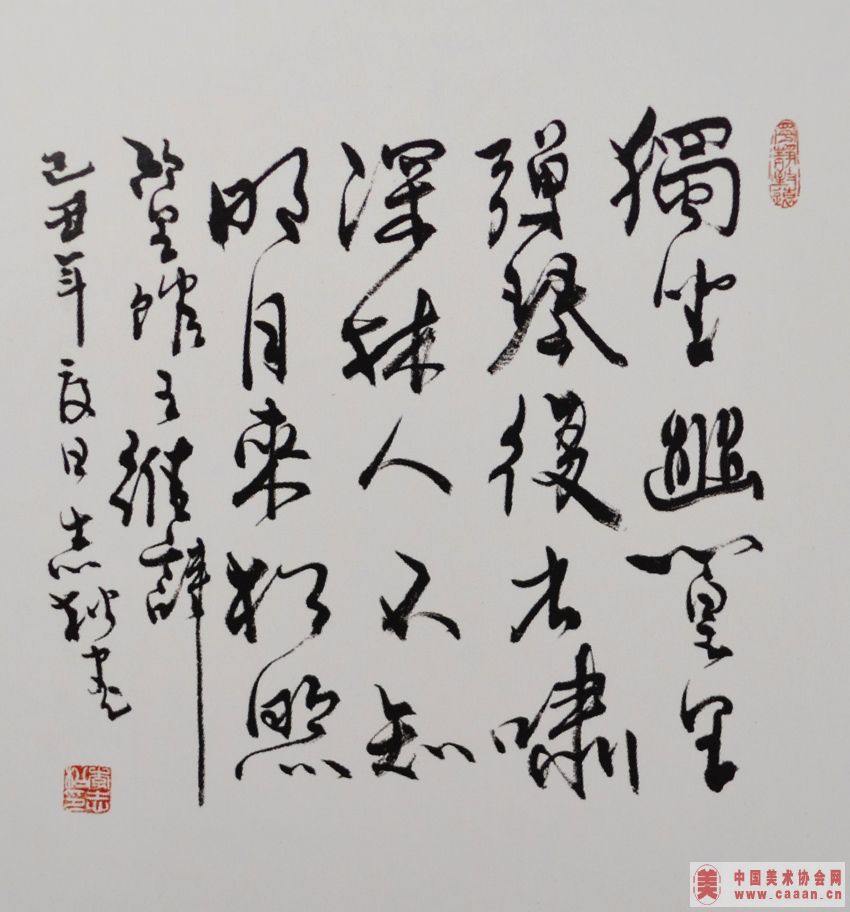 寧静致遠
獨坐幽篁里
彈琴復長嘯
深林人不知
明月來相照
竹里館王維詩
己丑年夏日志書
中国美术协会网
www.caaan.cn